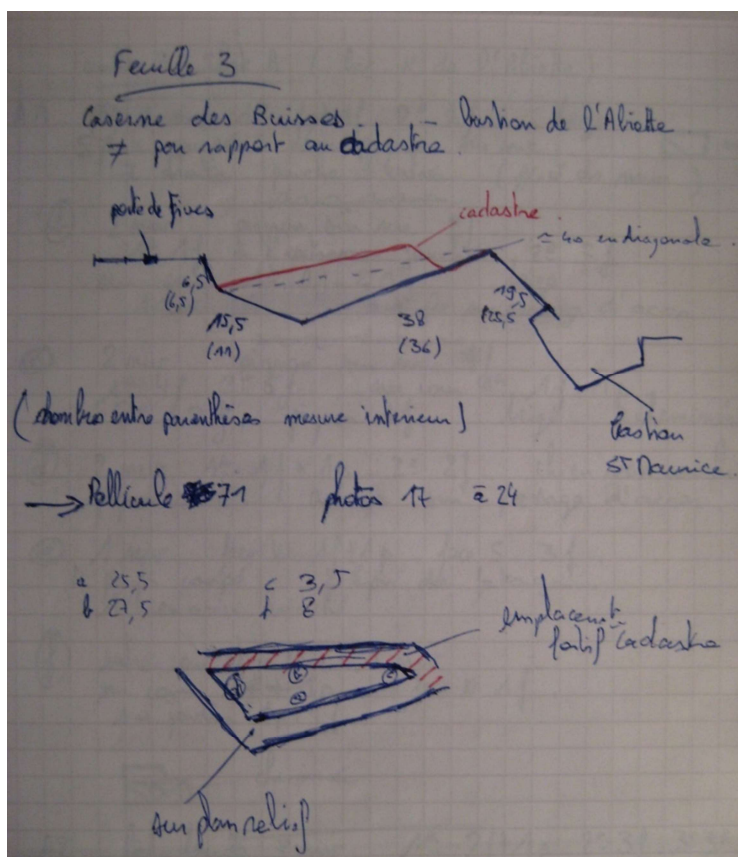 Feuille 3
Caserne des Buisses — bastion de l'Abiette
≠ par rapport au cadastre.
porte de Fives
cadastre
≃ 40 en diagonale.
6,5
(6,5)
15,5
(11)
38
(36)
19,5
(25,5)
bastion
ST Maurice.
(nombres entre parenthèses mesure interieur)
→ Pellicule 71 photos 17 à 24
a 25,5 c 3,5
b 27,5 d 8
emplacemt
fortif cadastre
sur plan relief